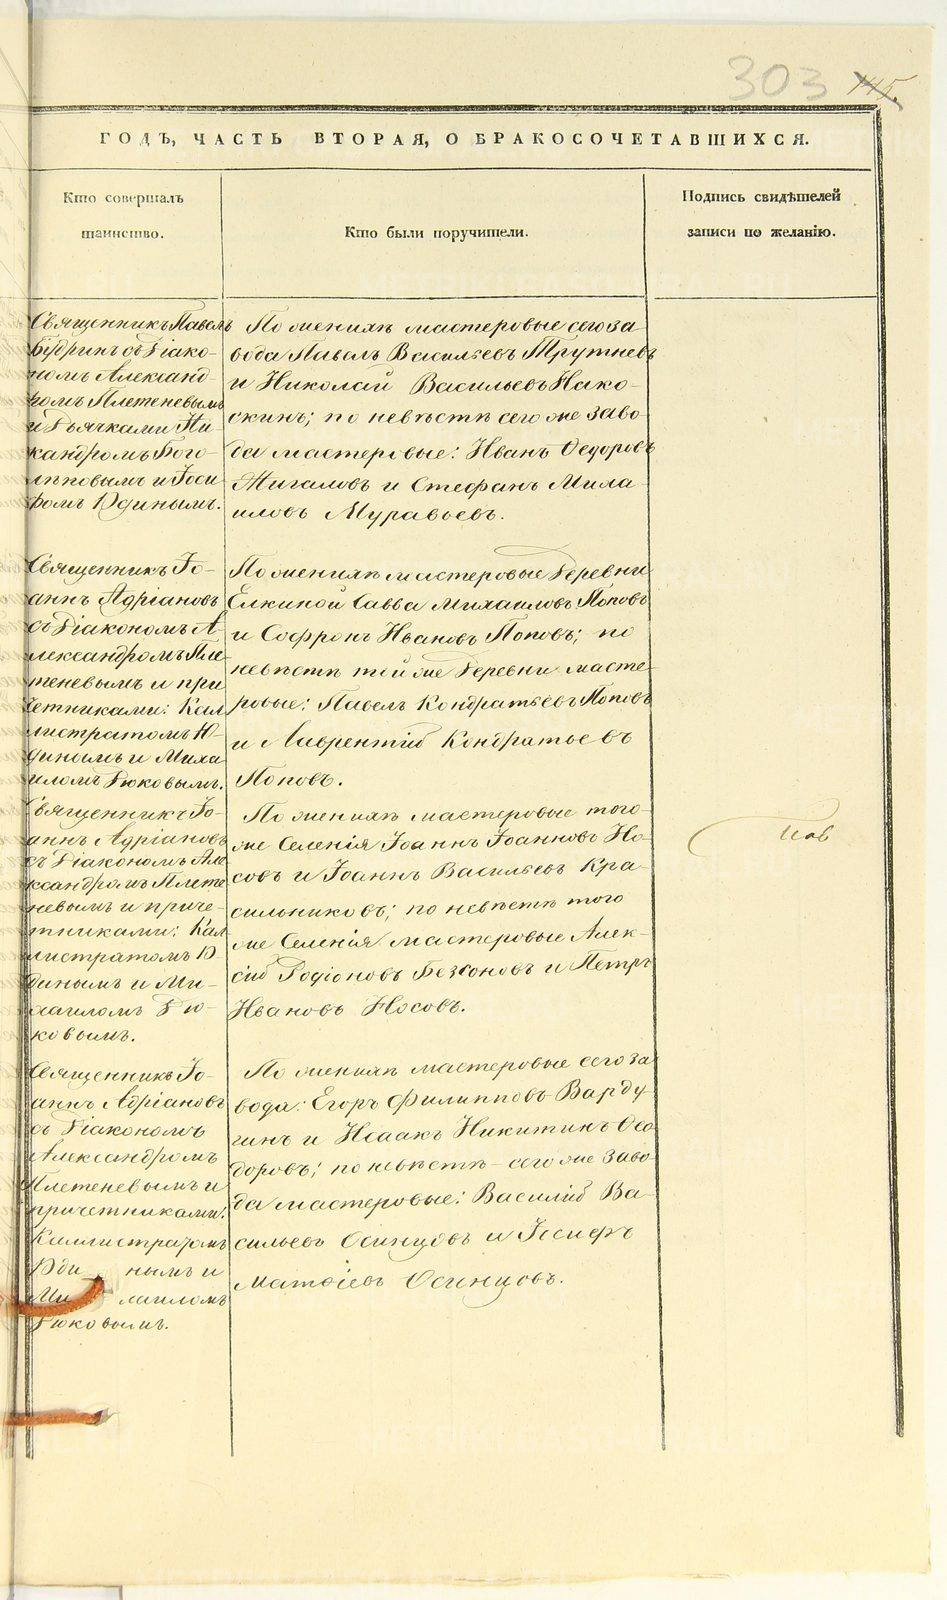 303 145.
ГОДЪ, ЧАСТЬ ВТОРАЯ, О БРАКОСОЧЕТАВШИХСЯ.
Кто совершалъ
таинство.
Кто были поручители.
Подпись свидѣтелей
записи по желанію.
Священникъ Павелъ
Будринъ съ Діако-
номъ Александ-
ромъ Плетеневымъ
и Дьячками Ни-
кандромъ Бого-
лѣповымъ и Іоси-
фомъ Юдинымъ.
По женихѣ мастеровые сего за
вода Павелъ Васильевъ Трутневъ
и Николай Васильевъ Нако-
скинъ; по невѣстѣ сего же заво-
да мастеровые: Иванъ Ѳедоровъ
Жигаловъ и Стефанъ Миха
иловъ Муравьевъ.
Священникъ Іо-
аннъ Адріановъ
съ Діакономъ А-
лександромъ Пле-
теневымъ и при
четниками: Кал
листратомъ Ю-
динымъ и Миха
иломъ Дюковымъ.
По женихѣ мастеровые деревни
Елкиной Савва Михаиловъ Поповъ
и Софронъ Ивановъ Поповъ; по
невѣстѣ той же деревни масте-
ровые: Павелъ Кондратьевъ Поповъ
и Лаврентій Кондратьевъ
Поповъ.
Священникъ Іо-
аннъ Адріановъ
съ Діакономъ Але
ксандромъ Плете
невымъ и приче-
тниками: Кал
листратомъ Ю
динымъ и Ми-
хаиломъ Дю-
ковымъ.
По женихѣ мастеровые того-
же Селенія Іоаннъ Іоанновъ Но-
совъ и Іоаннъ Васильевъ Кра-
сильниковъ; по невѣстѣ того
же Селенія мастеровые Алек-
сій Родіоновъ и Петръ
Ивановъ Носовъ.
Священникъ Іо-
аннъ Адріановъ
съ Діакономъ
Александромъ
Плетеневымъ и
причетниками:
Каллистратомъ
Юди нымъ и
Ми хаиломъ
Дюковымъ.
По женихѣ мастеровые сего за
вода: Егоръ Филипповъ Варду
гинъ и Исаакъ Никитинъ Ѳео
доровъ; по невѣстѣ - сего же заво
да мастеровые: Василій Ва-
сильевъ Осинцовъ и Іосифъ
Матѳіевъ Осинцовъ.